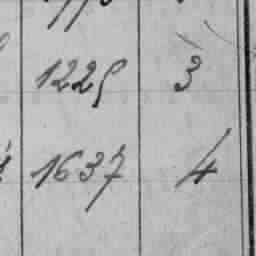 1225 3
1637 4